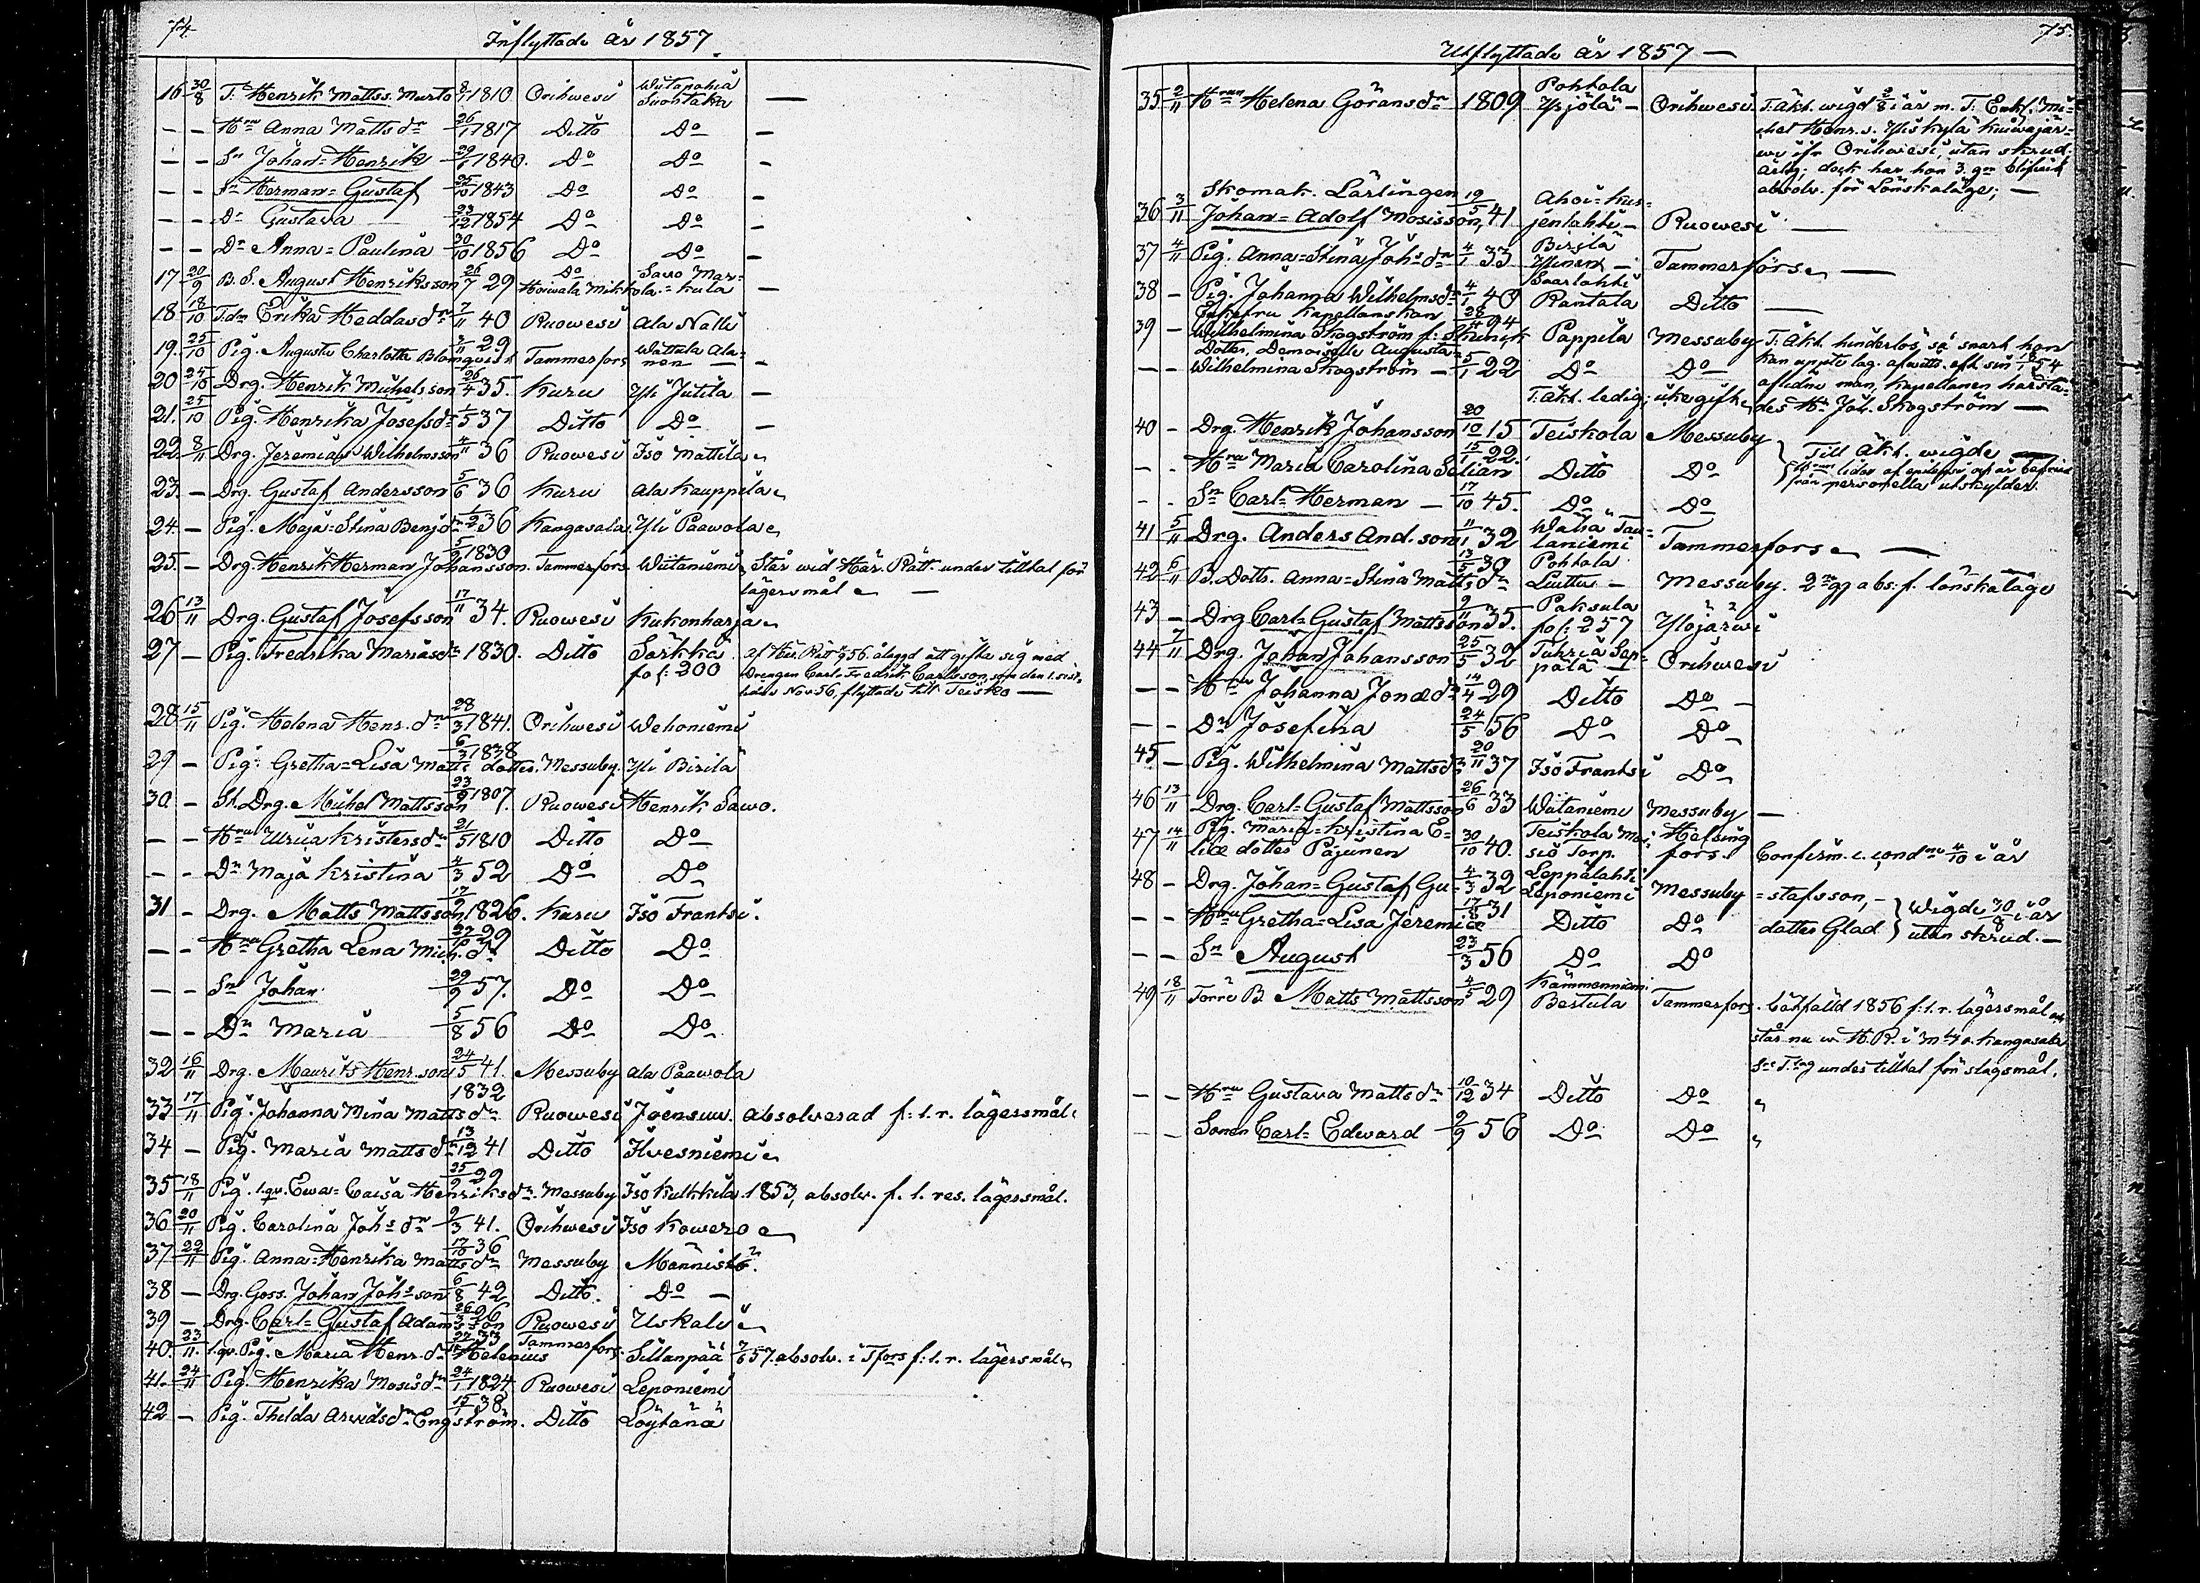 74.
Inflyttade år 1857.
16 30/8 T. Henrik Mattss. Murto 8/1 1810 Orihwesi Suontaka —
— — Hru Anna Mattsdr 26/1 1817 Ditto Do —
— — Sn Johan-Henrik 29/6 1840. Do Do —
— — Sn Herman-Gustaf 25/10 1843 Do Do —
— — Dr Gustava 23/12 1854 Do Do —
— — Dr Anna-Paulina 30/10 1856 Do Do —
17 20/9 B. S. August Henriksson 26/7 29 Do Hoiwala Mikkola. Sawo Mar-kula —
18 18/10 T.dr Erika Heddasdr 7/11 40 Ruowesi Ala Nalli
19. 25/10 Pig. Augusta Charlotta Blomqvist 29 Tammerfors Wattula Ala-nen —
20 24/10 Drg. Henrik Michelsson 26/4 35. Kuru Yli Jutila —
21. 25/10 Pig. Henrika Josefsdr 37 Ditto Do —
22. 8/11 Drg. Jeremias Wilhelmsson 4/11 36 Ruowesi Iso Mattila
23. — Drg. Gustaf Andersson 5/6 36 Kuru Ala Kauppila
24. — Pig. Maja-Stina Benjdr 36 Kangasala Yli Paawola
25. — Drg. Henrik Herman Johansson. 5/2 1830 Tammerfors Wiitaniemi Står wid Här. Rätt under tilltal för
lägersmål —
26 13/11 Drg. Gustaf Josefsson 17/11 34. Ruowesi Kukonharja
27 — Pig. Fredrika Mariasdr 1830. Ditto Särkkä fol: 200 af Här. Rätt 56 ålagd att gifta sig med
Drengen Carl Fredrik Carlsson, som den 1. sist-
lidne Nov. 56, flyttade till Teisko —
28 15/11 Pig. Helena Henr. dr 28/3 1841. Orihwesi Wehoniemi
29 — Pig. Gretha-Lisa Matts dotter. 6/3 1838 Messuby. Yli Birilä
30 — St. Drg. Michel Mattsson 23/9 1807. Ruowesi Henrik Sawo.
— — Hru Ulrica Kristersdr 21/5 1810 Ditto Do
— — Dr Maja Kristina 4/3 52 Do Do
31 — Drg. Matts Mattsson 17/2 1826. Kuru Iso Frantsi.
— — Hru Gretha Lena Mich. dr 29 Ditto Do
— — Sn Johan 29/9 57. Do Do
— — Dr Maria 5/8 56 Do Do
32 16/11 Drg. Maurits Henr.son 24/5 41. Messuby Ala Paawola
33 17/11 Pig. Johanna Mina Mattsdr 1832 Ruowesi Joensuu. absolverad f. 1. r. lägersmål.
34 — Pig. Maria Mattsdr 13/12 41 Ditto Ilvesniemi
35 18/11 Pig. l.qv. Ewa-Caisa Henriksdr. 25/2 29 Messuby Iso Kulkkila. 1853, absolv. f. 1. res. lägersmål.
36 20/11 Pig. Carolina Johs dr 2/3 41. Orihwesi Iso Kowero
37 22/11 Pig. Anna-Henrika Mattsdr 17/10 36 Messuby Männistö.
38 — Drg. Goss. Johan Johsson 6/8 42 Ditto. Do —
39 — Drg. Carl-Gustaf Adamsson 26 Ruowesi Uskali
40. 23/11 l.qv. Pig. Maria Henr. dr Helenius 22 33 Tammerfors. Sillanpää 57. absolv. i Tfors f: 1. r. lägersmål
41. 24/11 Pig. Henrika Mosisdr 24/1 1824 Ruowesi Leponiemi
42 — Pig. Thilda Arwidsdr Engström. 15/1 38 Ditto Löytänä
75.
Utflyttade år 1857 —
35 2/11 Hrun Helena Göransdr 1809 Pohtola Ypjölä — Orihwesi T. Äkt. wigd i år m. T. Enkl. Mi-
chel Henr. s. Yliskylä Kuiwajär-
wi ifr. Orihwesi, utan skrud.
ärlig; dock har hon 3. gr blifvit
absolv. för Lönskaläge; —
Skomak. Lärlingen
36 3/11 Johan-Adolf Mosisson, 19/5 41 Ahoi-Kus-jenlahti — Ruowesi —
37 4/11 Pig. Anna-Stina Johs dr 4/1 33 Birilä Ylinen — Tammerfors. —
38 — Pig. Johanna Wilhelmsdr 4/1 40 Saarlahti Rantala Ditto —
39 — Enkefru Kapellanskan Wilhelmina Skogström f: Skunck 28/4 94 Pappila Messuby T. Äkt. hinderlös, så snart hon
Dotter, Demoiselle Augusta-
— — Wilhelmina Skogström — 5/1 22 Do Do
kan uppte lag. afwitts. eft. sin 54
aflidne man, Kapellanen härstä-
T. Äkt. ledig; icke gift. des Hr Joh. Skogström —
40 — Drg. Henrik Johansson 20/10 15 Teiskola Messuby } Till Äkt. wigde —
— — Hru Maria Carolina Selian 15/1 22. Ditto Do lider af epilepsi och är befriad
från personella utskylder.
— Sn Carl-Herman — 17/10 45. Do Do
41 5/11 Drg. Anders And. son 11/1 32 Wähä Tau-laniemi Tammerfors. —
42 6/11 B. Dottr. Anna-Stina Mattsdr 13/5 30 Pohtola Luttu — Messuby. 2ne gg abs: f. lönskaläge
43 — Drg Carl-Gustaf Mattsson 2/11 35. Paksula fol: 257 Ylöjärwi
44 7/11 Drg. Johan Johansson 25/5 32 Tuhria Sep-pälä — Orihwesi
— — Hru Johanna Jonædr 14/4 29 Ditto Do —
— — Dr Josefina 24/5 56 Do Do
45 — Pig. Wilhelmina Mattsdr 20/11 37 Iso Frantsi Do
46 13/11 Drg. Carl-Gustaf Mattsson 26/6 33 Wiitaniemi Messuby —
47 14/11 Pig. Maria-Kristina E-liæ dotter Pajunen 30/10 40. Teiskola Moi-sio Torp. Helsingfors. Confirm. c. cond. 4/10 i år
48 — Drg. Johan-Gustaf Gu- 4/3 32 Leppälahti Leponiemi Messuby =stafsson, — } Wigde 30/8 i år
— — Hru Gretha-Lisa Jeremiæ 17/8 31 Ditto Do dotter Glad } utan skrud. —
— — Sn August 23/3 56 Do Do
49 18/11 Torp. B. Matts Mattsson 4/5 29 Kämmenniemi Bertula Tammerfors. Sakfälld 1856 f: 1. r. lägersmål och
står nu w. H. R. i Kangasala
Sn T.lag under tilltal för slagsmål.
— — Hru Gustava Mattsdr 10/12 34 Ditto Do "
— Sonen Carl-Edward 2/9 56 Do Do "